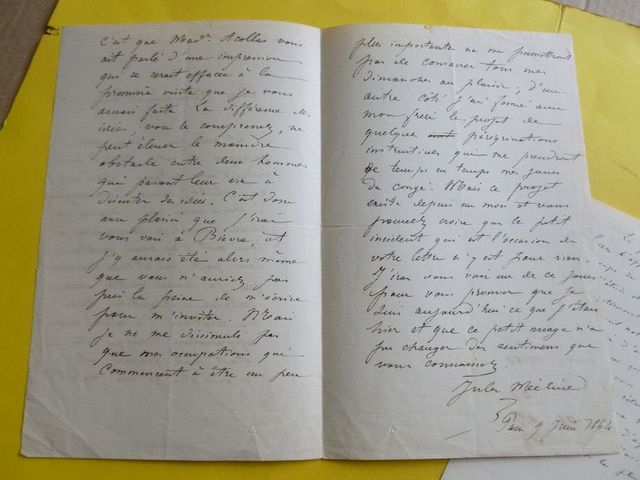 C'est que Mad.e Acollas vous
ait parlé d'une impression
qui se serait effacée à la
première visite que je vous
aurais faite. La différence des
idées, vous le comprenez, ne
peut élever le moindre
obstacle entre deux hommes
qui passent leur vie à
discuter des idées. C'est donc
avec plaisir que j'irai
vous voir à Bièvre, et
j'y aurais été alors même
que vous n'auriez pas
pris la peine de m'écrire
pour m'inviter. Mais
je ne me dissimule pas
que mes occupations qui
commencent à être un peu
plus importantes ne me permettront
pas de consacrer tous mes
Dimanches au plaisir; d'un
autre côté j'ai formé avec
mon frère le projet de
quelques pérégrinations
instructives qui me prendront
de temps en temps mes jours
de congé. Mais ce projet
existe depuis un mois et vous
pouvez croire que le petit
incident qui est l'occasion de
votre lettre n'y est pour rien.
J'irai vous voir un de ces jours
pour vous prouver que je
suis aujourd'hui ce que j'étais
hier et que ce petit nuage n'a
pu changer des sentimens que
vous connaissez
Jules Méline
9 Juin 1864